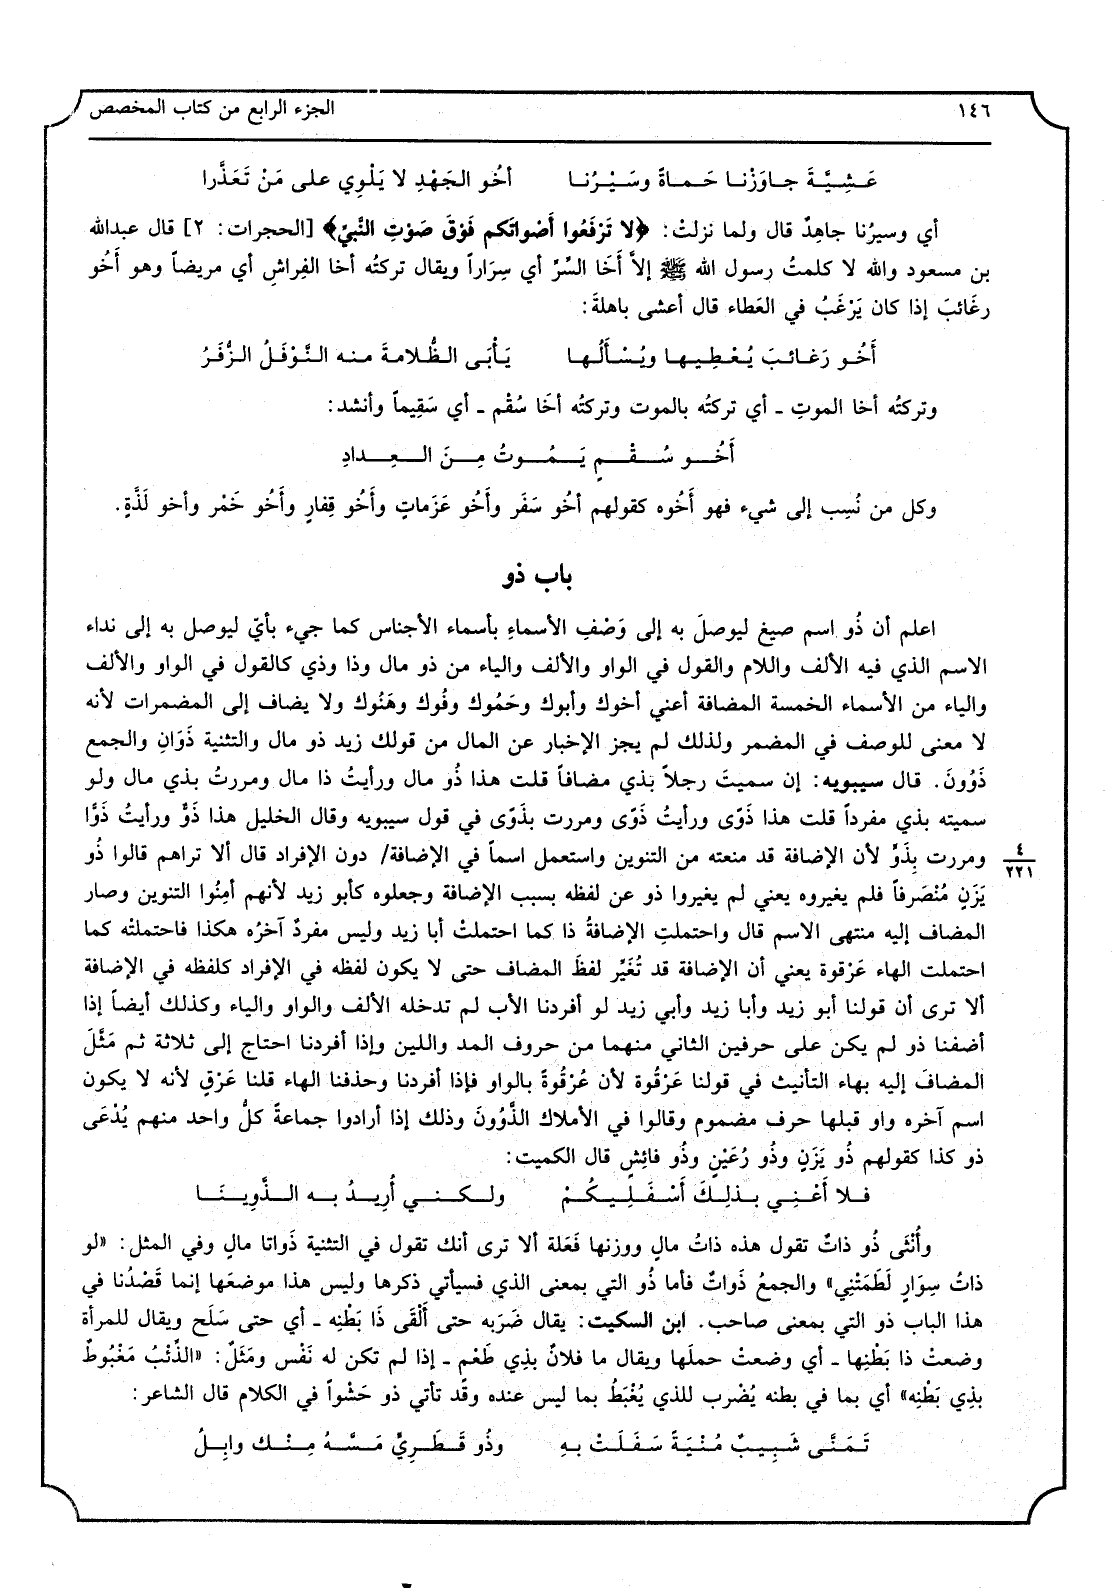 ١٤٦ الجزء الرابع من كتاب المخصص
عَـشِـيَّـةَ جـاوَزْنـا حَـمـاةَ وسَـيْـرُنـا أخُو الجَهْدِ لا يَلْوِي على مَنْ تَعَذَّرا
أي وسيرُنا جاهِدٌ قال ولما نزلتْ: ﴿لا تَرْفَعُوا أَصْواتَكم فَوْقَ صَوْتِ النَّبيِّ﴾ [الحجرات: ٢] قال عبدالله
بن مسعود والله لا كلمتُ رسول الله ﷺ إلاَّ أَخَا السِّرِّ أي سِرَاراً ويقال تركتُه أخا الفِراشِ أي مريضاً وهو أَخُو
رغَائبَ إذا كان يَرْغَبُ في العَطاء قال أعشى باهلةَ:
أَخُـو رَغـائـبَ يُـعْـطِـيـهـا ويُـسْـأَلُـهـا يَـأْبَـى الظُّـلامـةَ مـنـه الـنَّـوْفَـلُ الـزُّفَـرُ
وتركتُه أخا الموتِ ـ أي تركتُه بالموت وتركتُه أخَا سُقْم ـ أي سَقِيماً وأنشد:
أَخُـــو سُــقْــمٍ يَــمُــوتُ مِــنَ الــعِــدادِ
وكل من نُسِب إلى شيء فهو أَخُوه كقولهم أخُو سَفَر وأَخُو عَزَماتٍ وأَخُو قِفارٍ وأَخُو خَمْر وأخو لَذَّةٍ.
باب ذو
اعلم أن ذُو اسم صيغ ليوصلَ به إلى وَصْفِ الأسماءِ بأسماء الأجناس كما جيء بأيّ ليوصل به إلى نداء
الاسم الذي فيه الألف واللام والقول في الواو والألف والياء من ذو مال وذا وذي كالقول في الواو والألف
والياء من الأسماء الخمسة المضافة أعني أخوك وأبوك وحَمُوك وفُوك وهَنُوك ولا يضاف إلى المضمرات لأنه
لا معنى للوصف في المضمر ولذلك لم يجز الإخبار عن المال من قولك زيد ذو مال والتثنية ذَوَانِ والجمع
ذَوُونَ. قال سيبويه: إن سميتَ رجلاً بذي مضافاً قلت هذا ذُو مال ورأيتُ ذا مال ومررتُ بذي مال ولو
سميته بذي مفرداً قلت هذا ذَوًى ورأيتُ ذَوًى ومررت بذَوًى في قول سيبويه وقال الخليل هذا ذَوٌّ ورأيتُ ذَوًّا
ومررت بِذَوٍّ لأن الإضافة قد منعته من التنوين واستعمل اسماً في الإضافة/ دون الإفراد قال ألا تراهم قالوا ذُو
٤
٢٢١
يَزَنٍ مُنْصَرفاً فلم يغيروه يعني لم يغيروا ذو عن لفظه بسبب الإضافة وجعلوه كأبو زيد لأنهم أمِنُوا التنوين وصار
المضاف إليه منتهى الاسم قال واحتملتِ الإضافةُ ذا كما احتملتْ أبا زيد وليس مفردٌ آخرُه هكذا فاحتملتْه كما
احتملت الهاء عَرْقوة يعني أن الإضافة قد تُغَيِّر لفظَ المضاف حتى لا يكون لفظه في الإفراد كلفظه في الإضافة
ألا ترى أن قولنا أبو زيد وأبا زيد وأبي زيد لو أفردنا الأب لم تدخله الألف والواو والياء وكذلك أيضاً إذا
أضفنا ذو لم يكن على حرفين الثاني منهما من حروف المد واللين وإذا أفردنا احتاج إلى ثلاثة ثم مَثَّلَ
المضافَ إليه بهاء التأنيث في قولنا عَرْقُوة لأن عُرْقُوةً بالواو فإذا أفردنا وحذفنا الهاء قلنا عَرْقٍ لأنه لا يكون
اسم آخره واو قبلها حرف مضموم وقالوا في الأملاك الذَّوُونَ وذلك إذا أرادوا جماعةً كلُّ واحد منهم يُدْعَى
ذو كذا كقولهم ذُو يَزَنٍ وذُو رُعَيْنٍ وذُو فائِشٍ قال الكميت:
فـلا أَعْـنِـي بـذلِـكَ أَسْـفَـلِـيـكُـمْ ولـكـنـي أُرِيـدُ بـه الـذَّوِيـنَـا
وأُنْثَى ذُو ذاتٌ تقول هذه ذاتُ مالٍ ووزنها فَعَلة ألا ترى أنك تقول في التثنية ذَواتا مالٍ وفي المثل: «لو
ذاتُ سِوَارٍ لَطَمَتْنِي» والجمعُ ذَواتٌ فأما ذُو التي بمعنى الذي فسيأتي ذكرها وليس هذا موضعَها إنما قَصْدُنا في
هذا الباب ذو التي بمعنى صاحب. ابن السكيت: يقال ضَرَبه حتى أَلْقَى ذَا بَطْنِه ـ أي حتى سَلَح ويقال للمرأة
وضعتْ ذا بَطْنِها ـ أي وضعتْ حملَها ويقال ما فلانٌ بذِي طَعْم ـ إذا لم تكن له نَفْس ومَثَلٌ: «الذِّئْبُ مَغْبُوطٌ
بذِي بَطْنِه» أي بما في بطنه يُضْرب للذي يُغْبَطُ بما ليس عنده وقد تأتي ذو حَشْواً في الكلام قال الشاعر:
تَـمَـنَّـى شَـبِـيـبٌ مُـنْـيَـةً سَـفَـلَـتْ بـهِ وذُو قَـطَـرِيٍّ مَـسَّـهُ مِـنْـك وابِـلُ